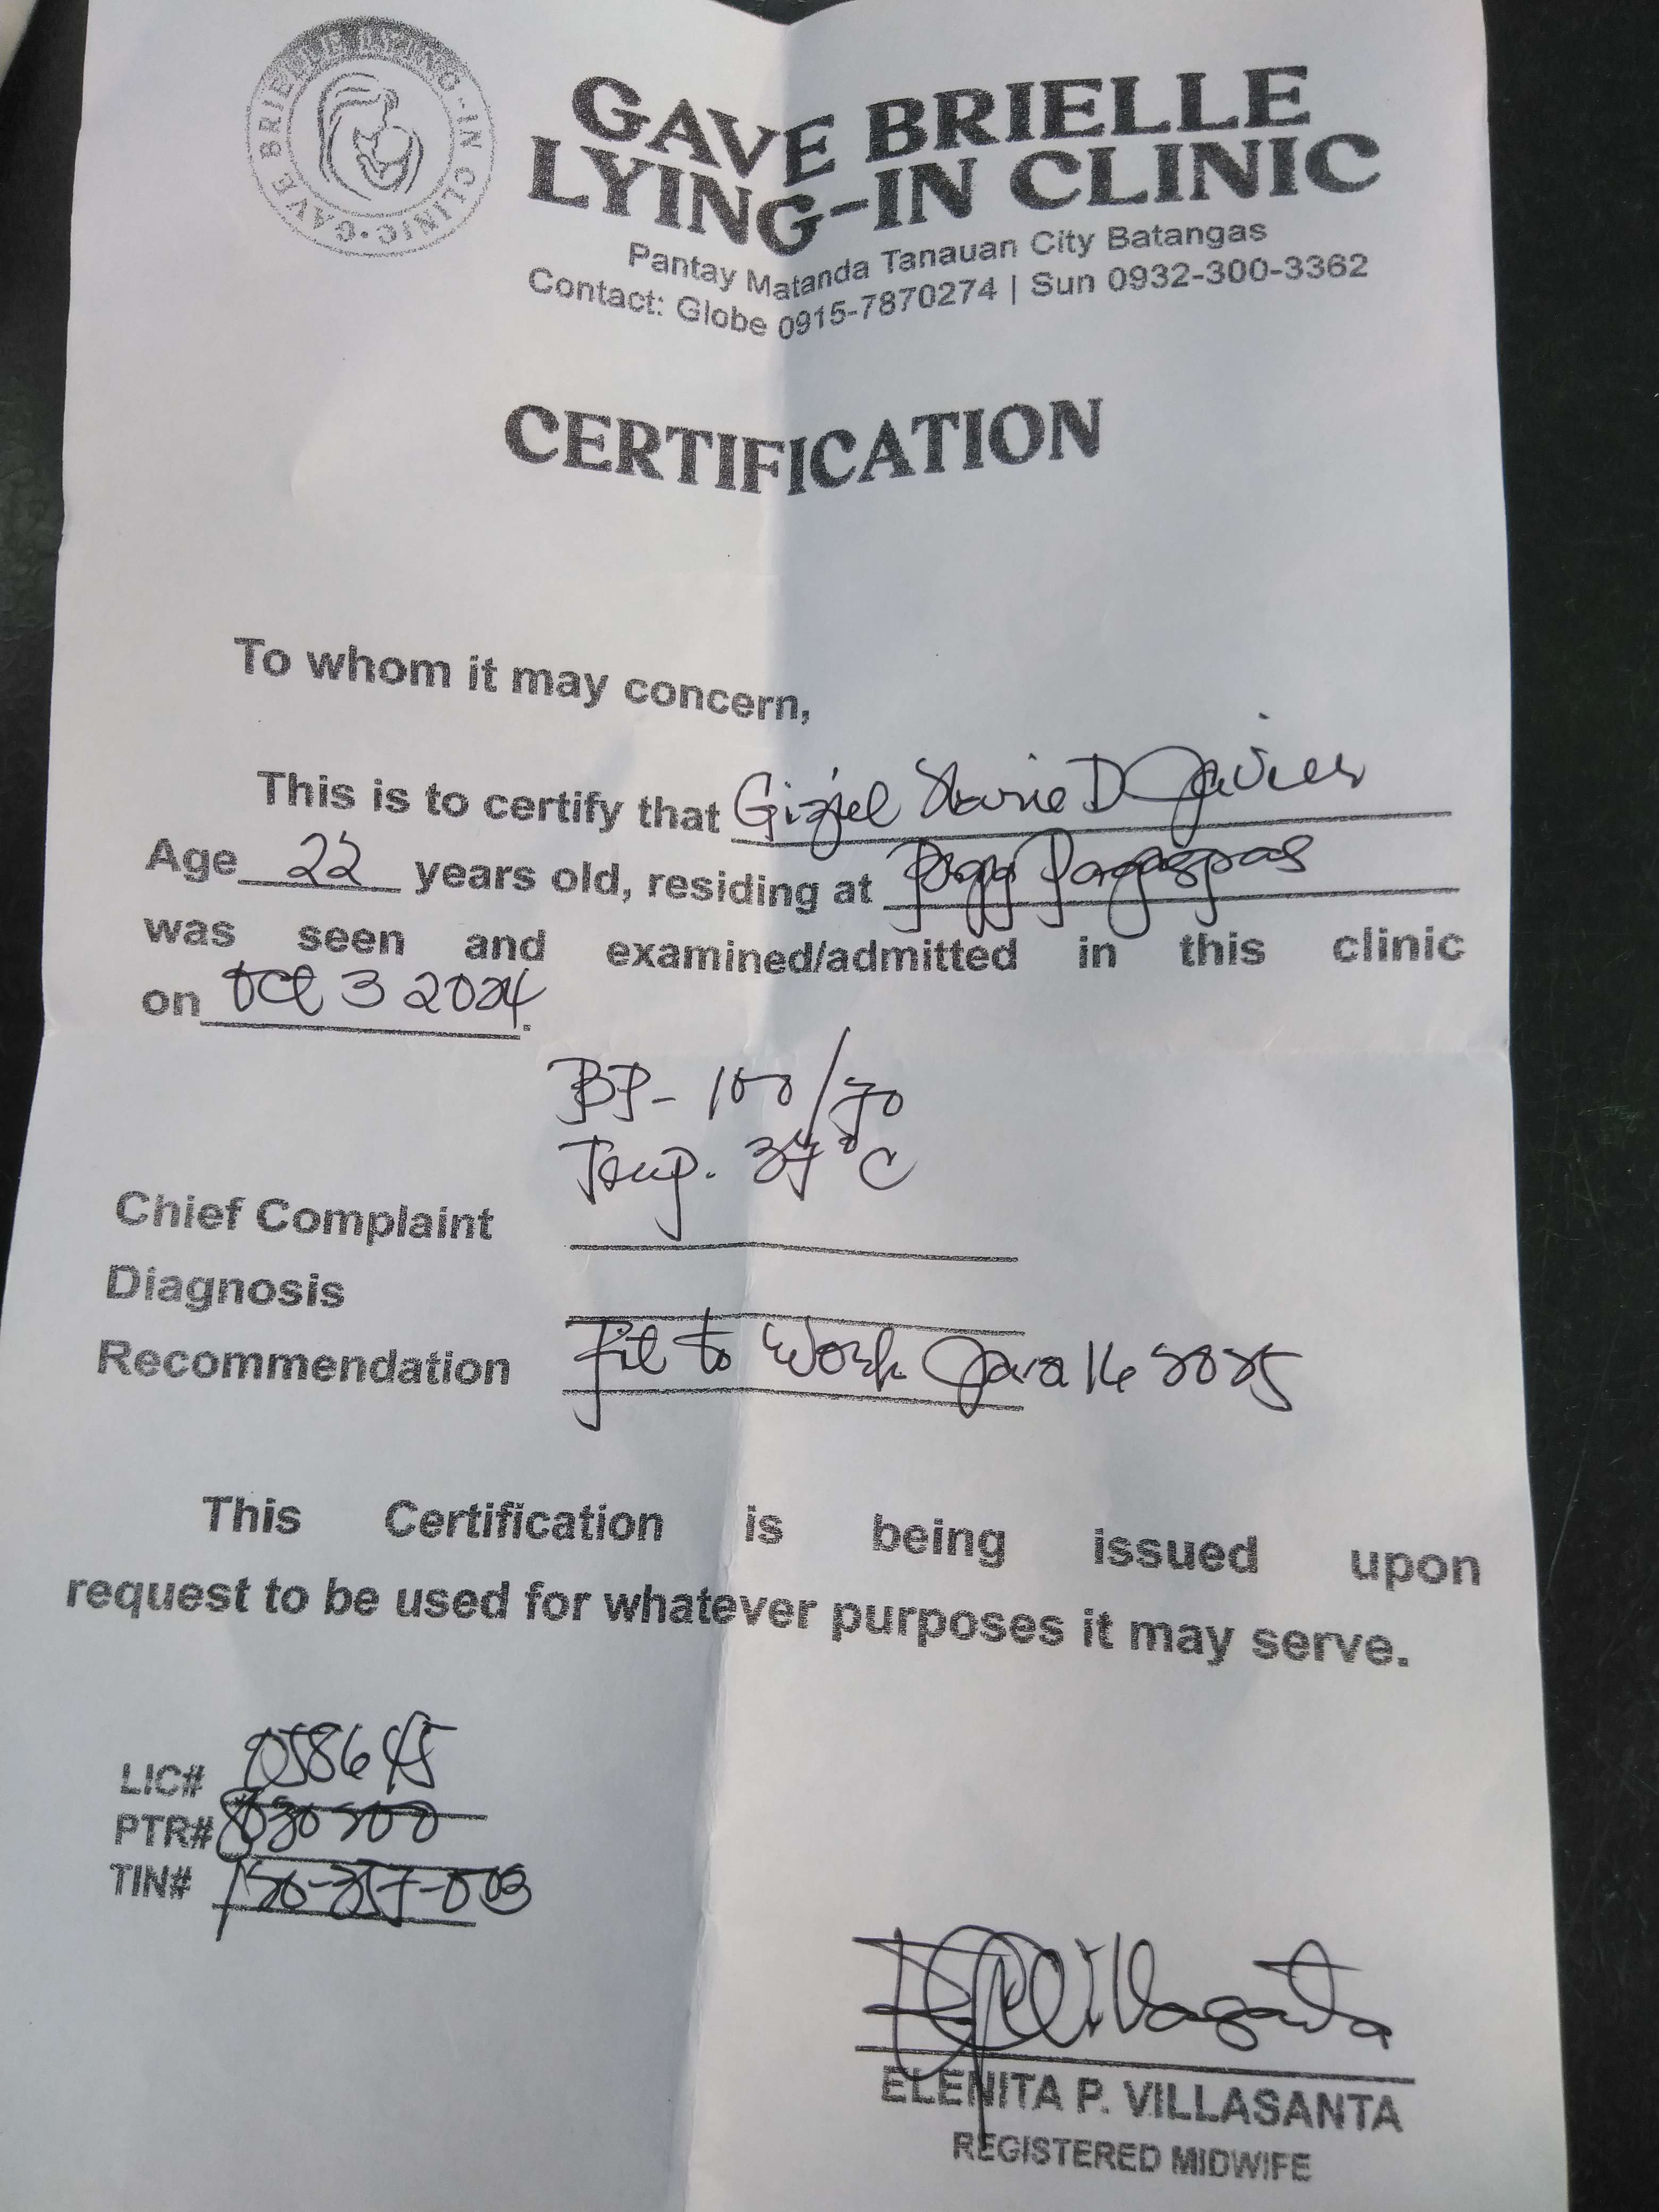 GAVE BRIELLE LYING-IN CLINIC • GAVE
GAVE BRIELLE
LYING-IN CLINIC
Pantay Matanda Tanauan City Batangas
Contact: Globe 0915-7870274 | Sun 0932-300-3362
CERTIFICATION
To whom it may concern,
This is to certify that Gizel Marie D Javier
Age 22 years old, residing at Brgy Pagaspas
was seen and examined/admitted in this clinic
on Oct 3 2024.
BP- 100/70
Temp. 37°C
Chief Complaint
Diagnosis
Recommendation Fit to Work Jan 16 2025
This Certification is being issued upon
request to be used for whatever purposes it may serve.
LIC#
PTR#
TIN#
EPVillasanta
ELENITA P. VILLASANTA
REGISTERED MIDWIFE